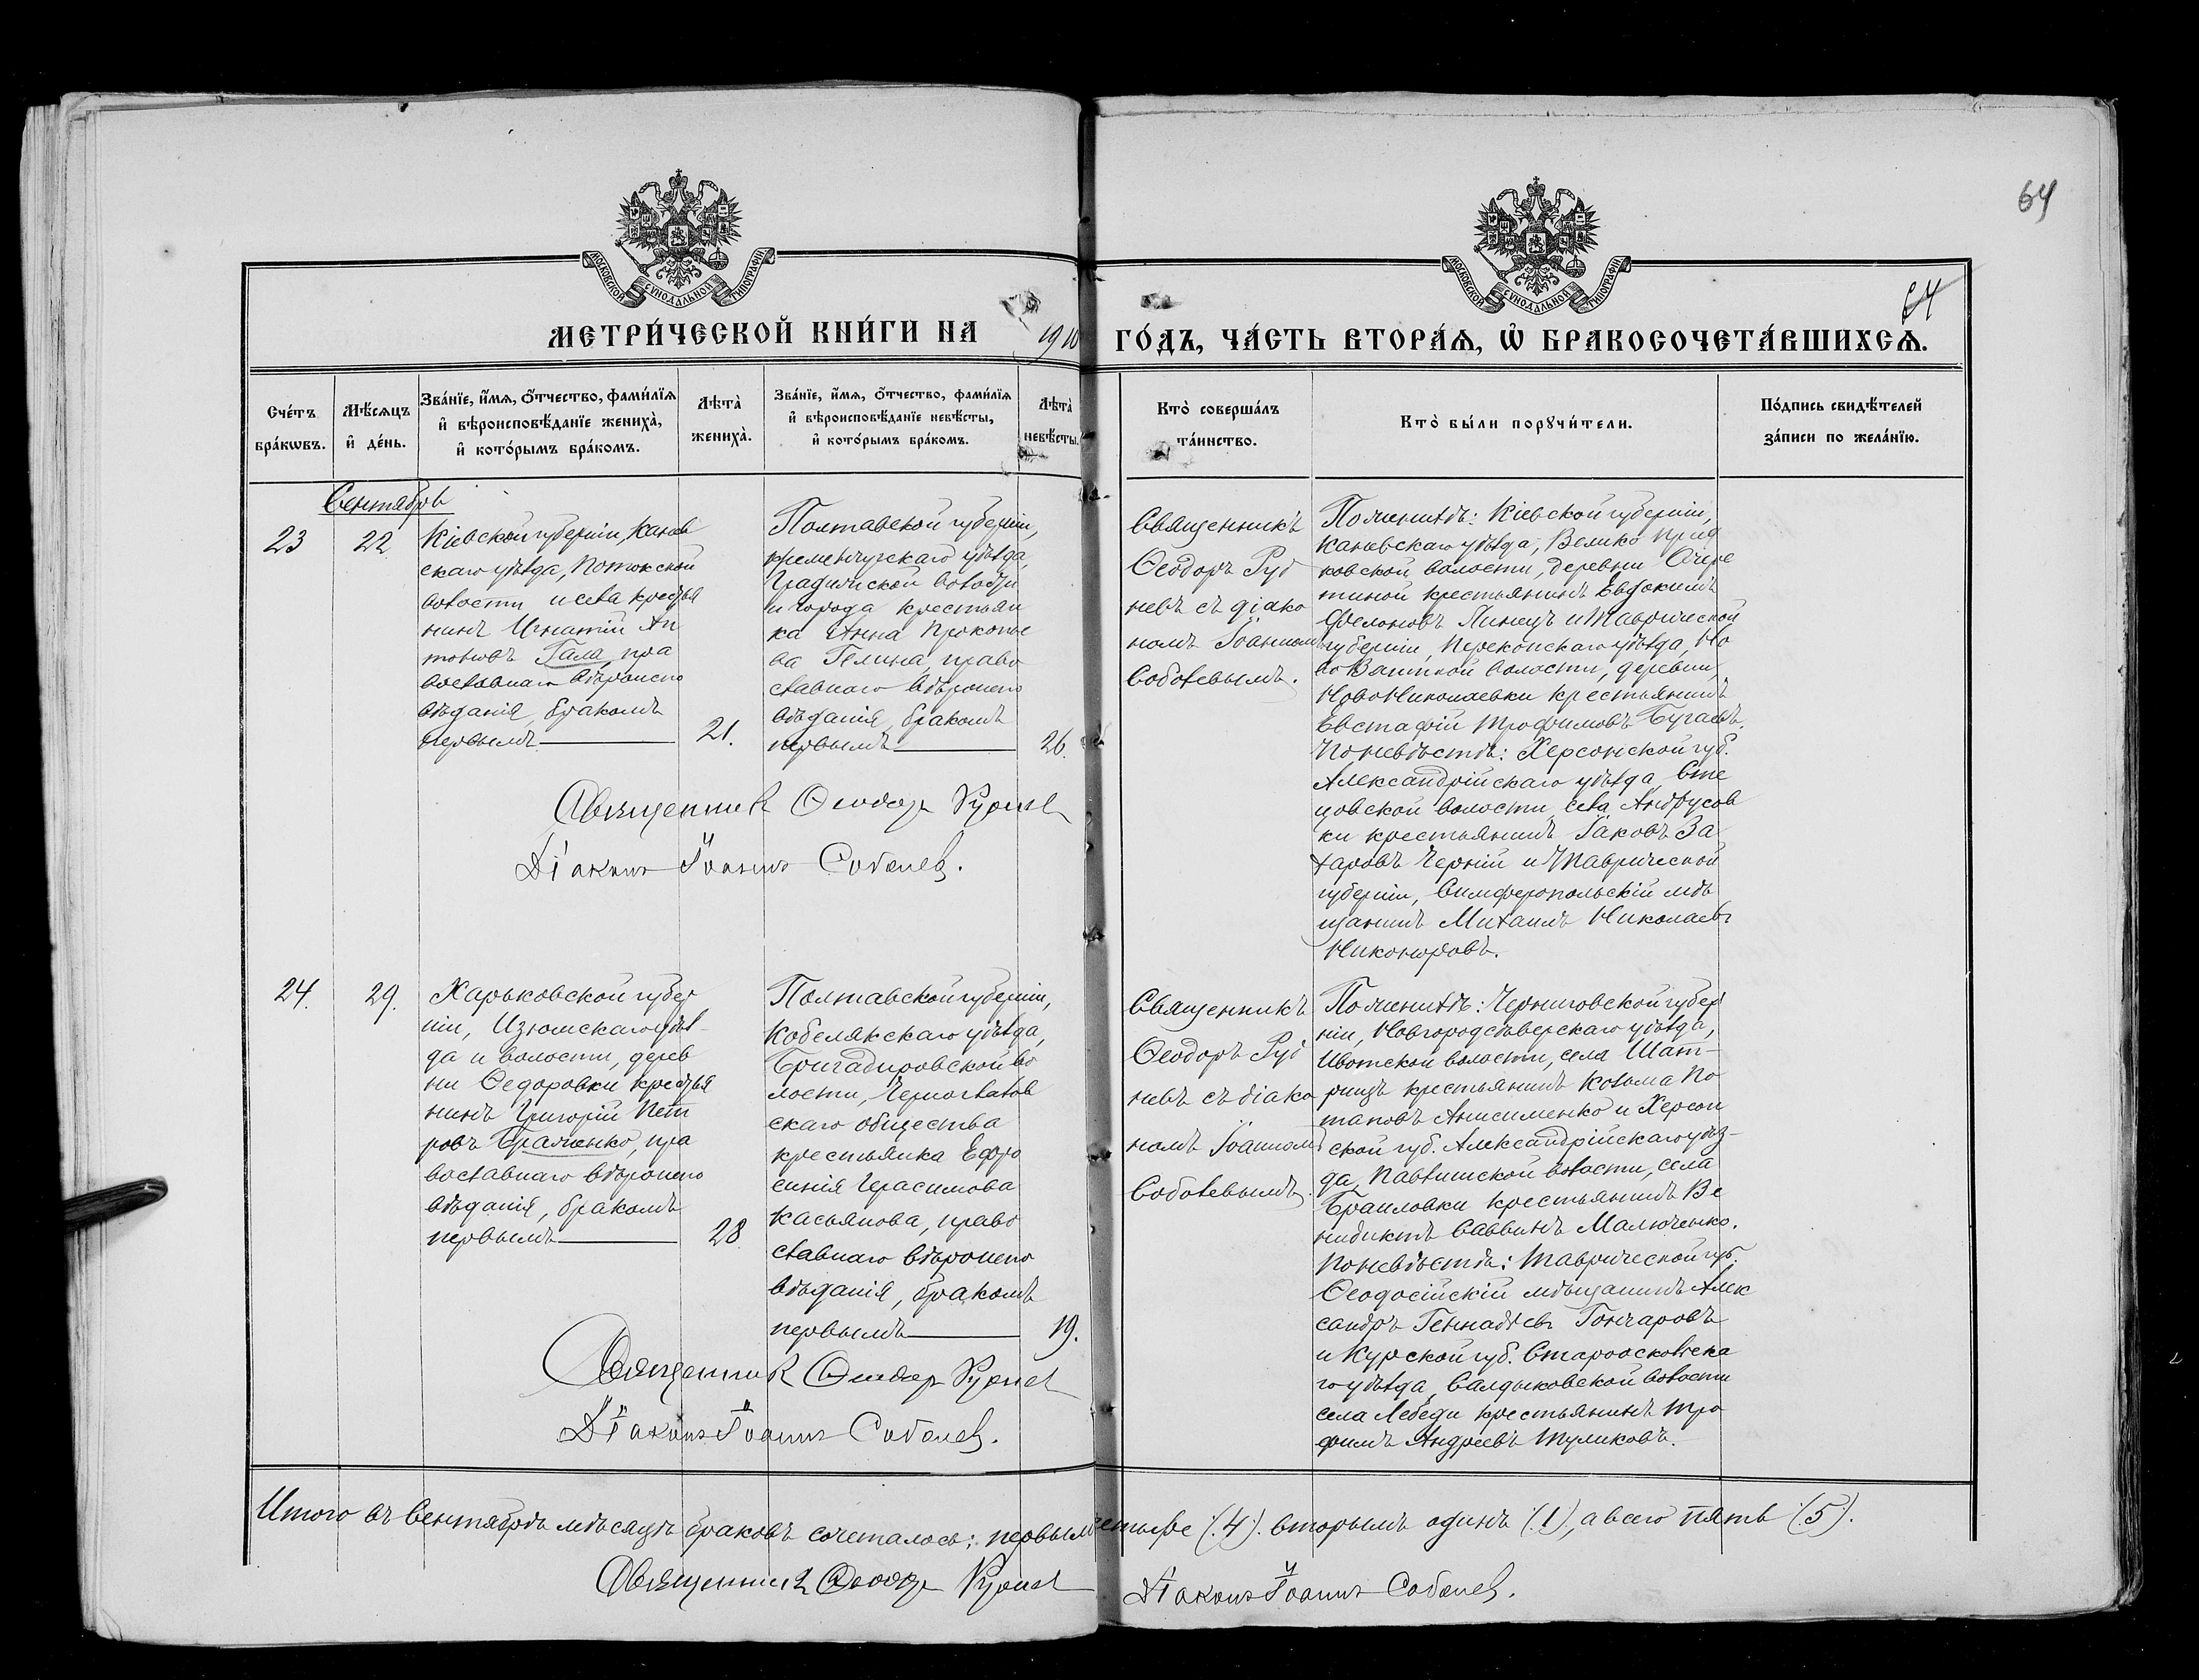 64
МОСКОВСКОЙ СУНОДАЛЬНОЙ ТИПОГРАФІИ
МОСКОВСКОЙ СУНОДАЛЬНОЙ ТИПОГРАФІИ
64
МЕТРИ́ЧЕСКОЙ КНИ́ГИ НА 1910 ГО́ДЪ, ЧА́СТЬ ВТОРА́Ѧ, Ѡ҆ БРАКОСОЧЕТА́ВШИХСѦ.
Сче́тъ
бра́кѡвъ.
Мѣ́сѧцъ
и҆ де́нь.
Зва́нїе, и҆́мѧ, ѻ҆́тчество, фами́лїѧ
и҆ вѣроисповѣ́данїе жениха̀,
и҆ кото́рымъ бра́комъ.
Лѣта̀
жениха̀.
Зва́нїе, и҆́мѧ, ѻ҆́тчество, фами́лїѧ
и҆ вѣроисповѣ́данїе невѣ́сты,
и҆ кото́рымъ бра́комъ.
Лѣта̀
невѣ́сты.
Кто̀ соверша́лъ
та́инство.
Кто̀ бы́ли порꙋчи́тели.
По́дпись свидѣ́телей
за́писи по жела́нїю.
Сентябрь
23
22
Кіевской губерніи, Канев
скаго уѣзда, Потокской
волости и села крестья
нинъ Игнатій Ан
тоновъ Гала, пра
вославнаго вѣроиспо
вѣданія, бракомъ
первымъ
21.
Полтавской губерніи,
кременчугскаго уѣзда,
Градижской волости
и города крестьян
ка Анна Прокопье
ва Гелина, право
славнаго вѣроиспо
вѣданія, бракомъ
первымъ
26.
Священникъ
Ѳеодоръ Руд
невъ съ діако
номъ Іоанномъ
Соболевымъ.
По женихѣ: Кіевской губерніи,
Каневскаго уѣзда, Велико Приц
ковской волости, деревни Очере
тиной крестьянинъ Евдокимъ
Филоновъ Линецъ и Таврической
губерніи, Перекопскаго уѣзда, Но
во деревни
НовоНиколаевки крестьянинъ
Евстафій Трофимовъ Бугаевъ.
По невѣстѣ: Херсонской губ.
Александрійскаго уѣзда, Сте
цовской волости, села Андрусов
ки крестьянинъ Іаковъ За
харовъ Черній и Таврической
губерніи, Симферопольскій мѣ
щанинъ Михаилъ Николаевъ
Никоноровъ.
Священникъ Ѳеодоръ Рудневъ
Діаконъ Іоаннъ Соболевъ.
24.
29.
Харьковской губер
ніи, Изюмскаго уѣз-
да и волости, дерев
ни Ѳедоровки крестья
нинъ Григорій Пет
ровъ Браженко, пра
вославнаго вѣроиспо
вѣданія, бракомъ
первымъ
28.
Полтавской губерніи,
Кобелякскаго уѣзда,
Бригадировской во
лости, Черноглазов
скаго общества
крестьянка Ефро
синія Герасимова
Касьянова, право
славнаго вѣроиспо
вѣданія, бракомъ
первымъ
19.
Священникъ
Ѳеодоръ Руд
невъ съ діако
номъ Іоанномъ
Соболевымъ.
По женихѣ: Черниговской губер
ніи, Новгородсѣверскаго уѣзда,
Ивотской волости, села Шат-
рищъ крестьянинъ Козьма По
таповъ Анисименко и Херсон
ской губ. Александрійскаго уѣз-
да, Павлишской волости, села
Браиловки крестьянинъ Ве
недиктъ Саввинъ Малюченко.
По невѣстѣ: Таврической губ.
Ѳеодосійскій мѣщанинъ Алек
сандръ Геннадіевъ Гончаровъ
и Курской губ. Старооскольска
го уѣзда, Салдыковской волости
села Лебеди крестьянинъ Тро
фимъ Андреевъ Туликовъ.
Священникъ Ѳеодоръ Рудневъ
Діаконъ Іоаннъ Соболевъ.
Итого въ Сентябрѣ мѣсяцѣ браковъ сочеталось: первымъ четыре (4). вторымъ одинъ (1), а всего пять (5).
Священникъ Ѳеодоръ Рудневъ Діаконъ Іоаннъ Соболевъ.